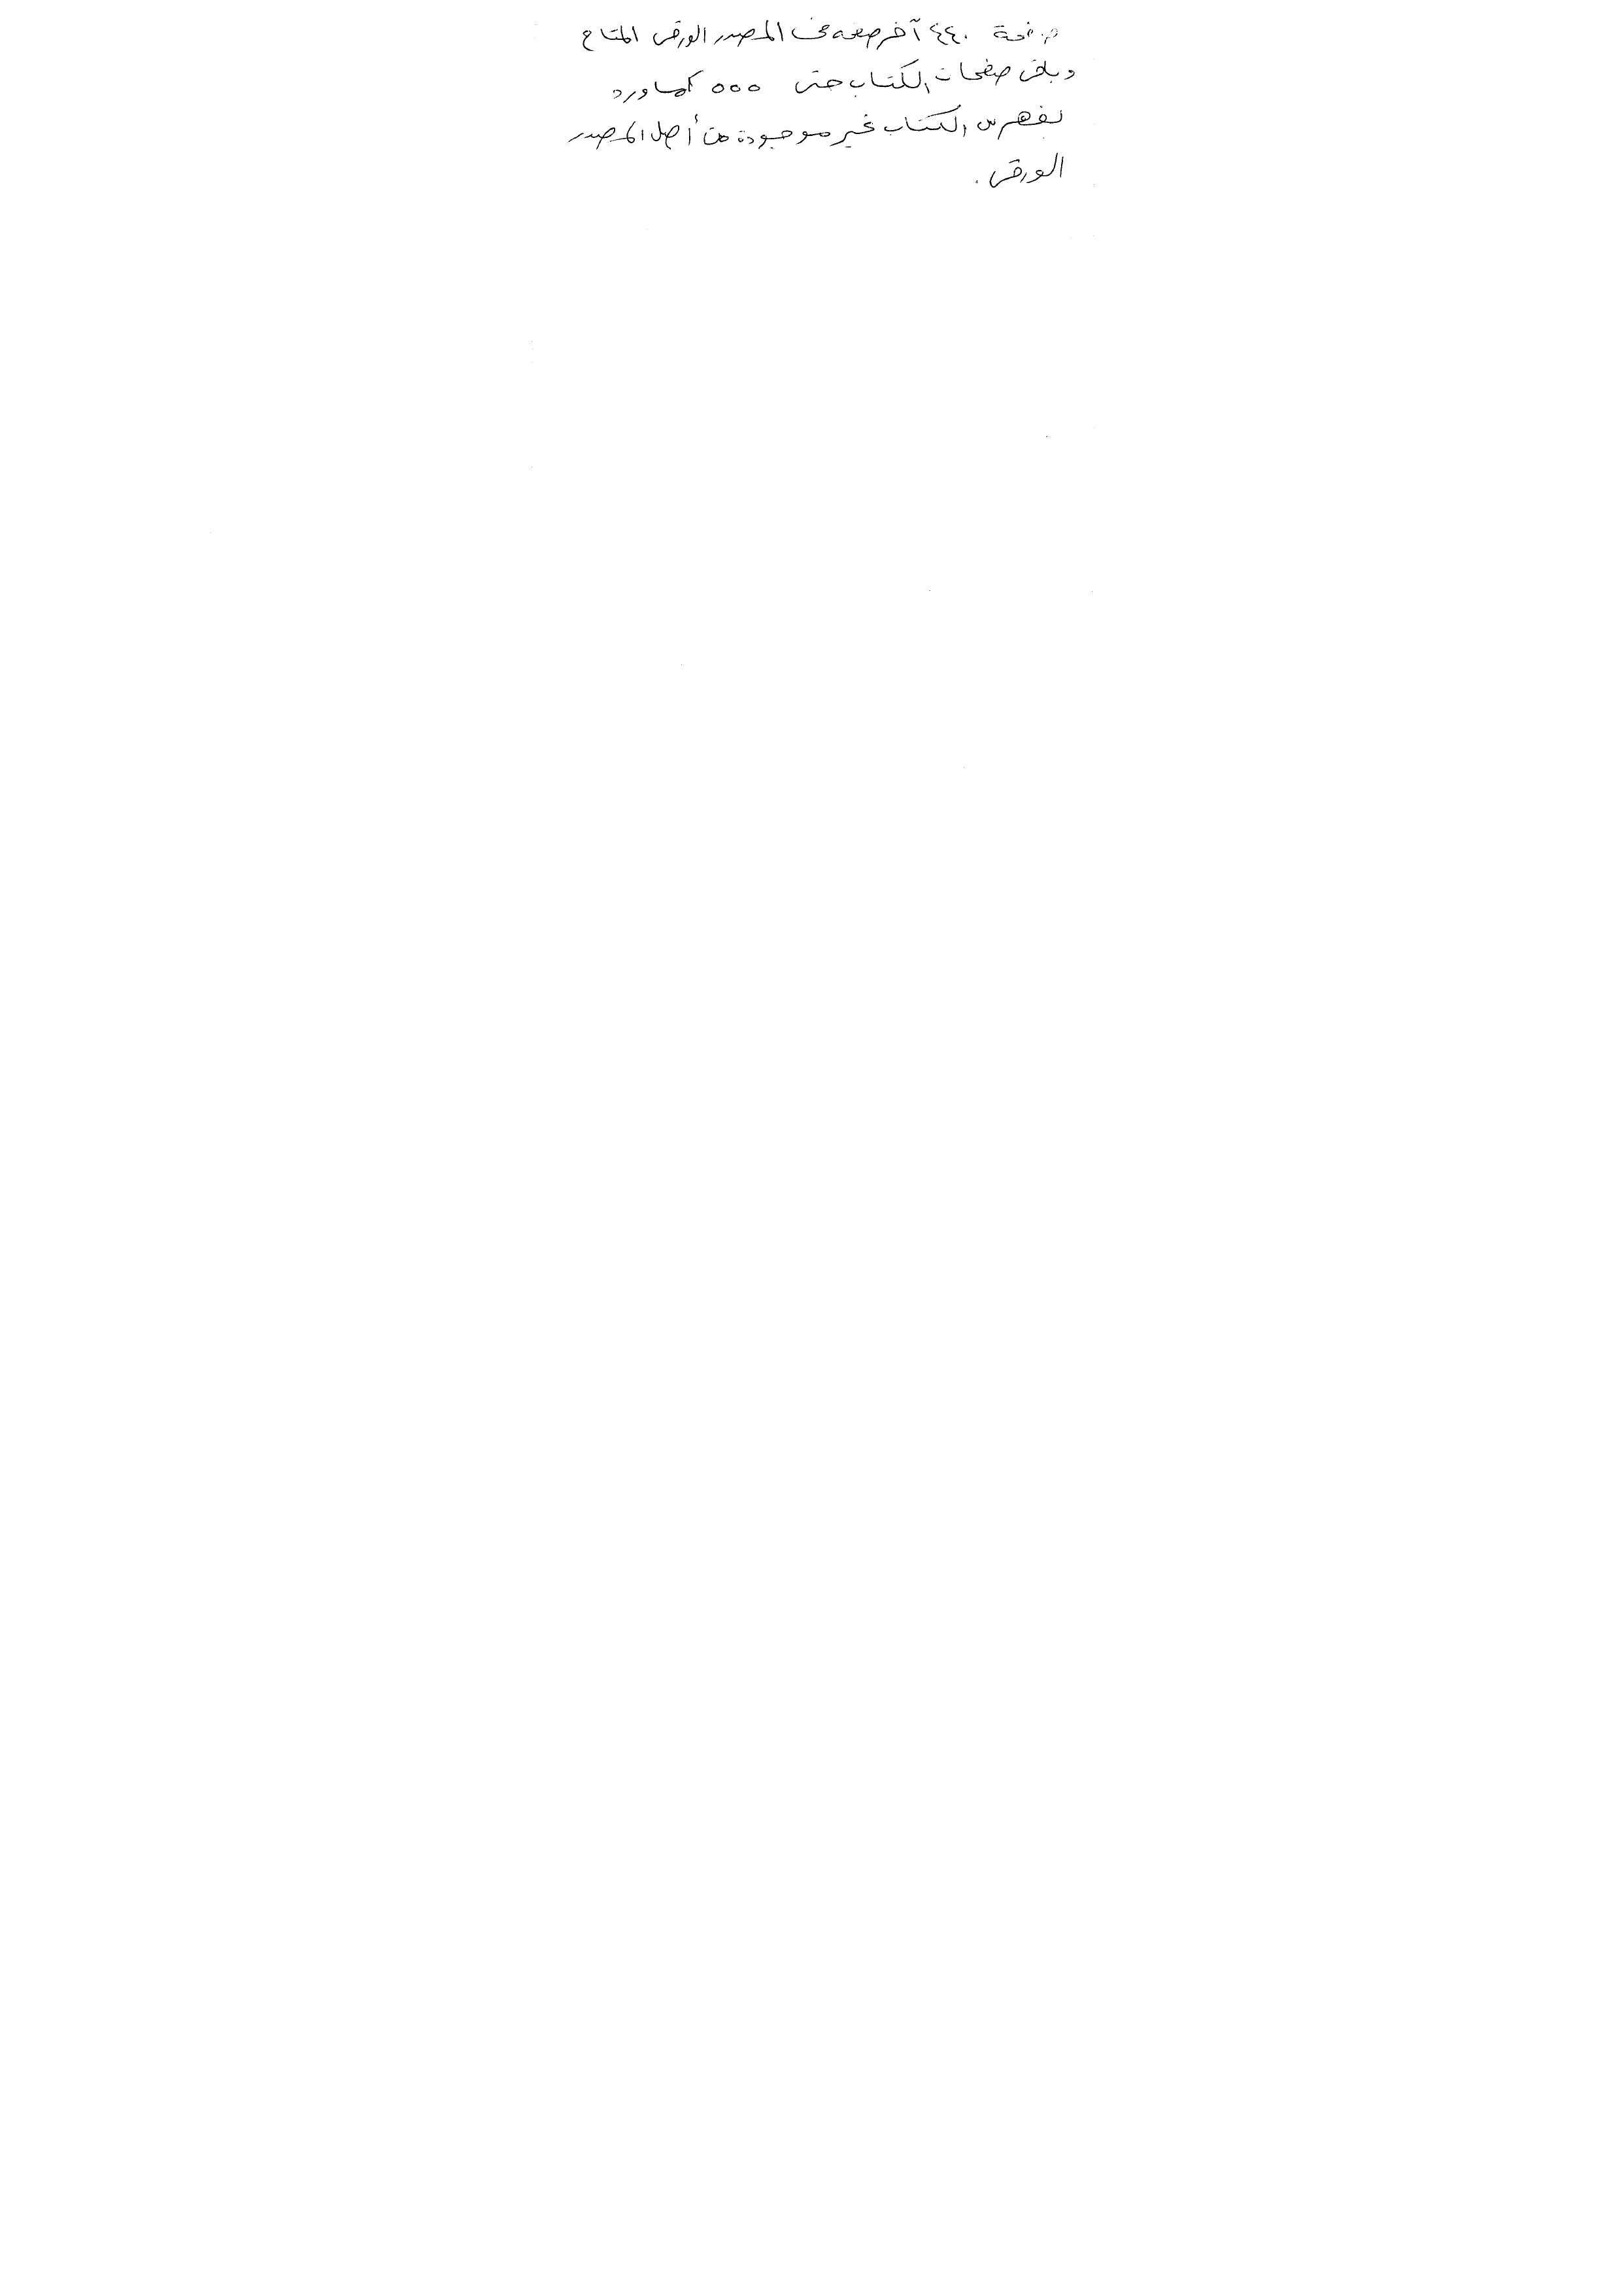 صفحة ٤٤٠ آخر صفحه في المصدر الورقى المتاح
و باقى صفحات الكتاب حتى ٥٥٥ كما ورد
بفهرس الكتاب غير موجودة من أصل المصدر
الورقى .